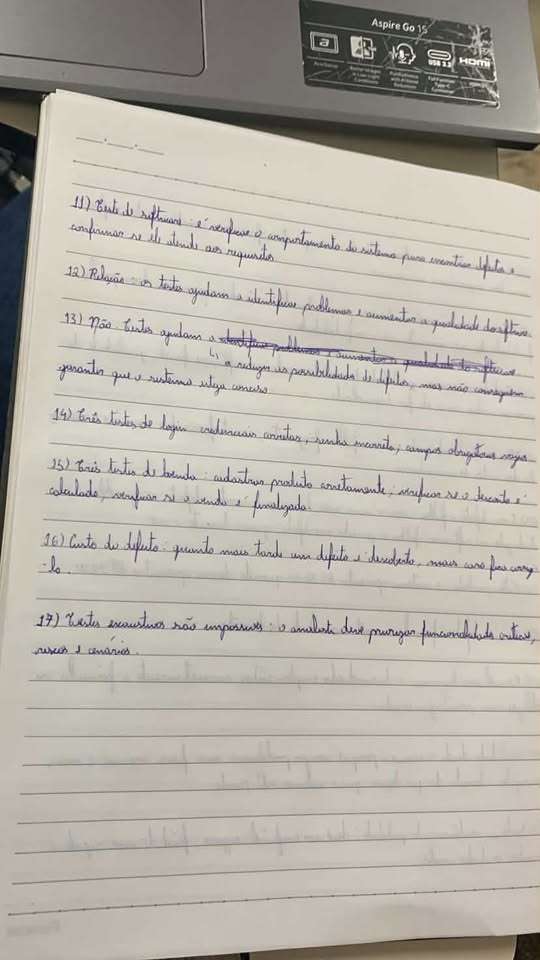 Aspire Go 15
a
USB 3.2
HDMI
Acer Sense
Full Function
Type-C
11) Teste de software: é verificar o comportamento do sistema para encontrar defeitos e
confirmar se ele atende aos requisitos
12) Relação: os testes ajudam a identificar problemas e aumentar a qualidade do software
13) Não. Testes ajudam a identificar problemas e aumentar a qualidade do software
↳ a reduzir as possibilidades de defeitos, mas não conseguem
garantir que o sistema esteja
14) Três testes de login: credenciais corretas, senha incorreta, campos obrigatórios vazios
15) Três testes de venda: cadastrar produto corretamente, verificar se o desconto é
calculado, verificar se a venda é finalizada.
16) Custo do defeito: quanto mais tarde um defeito é descoberto, mais caro fica corrigi
-lo.
17) Testes exaustivos são impossíveis: o analista deve priorizar funcionalidades críticas,
riscos e cenários.